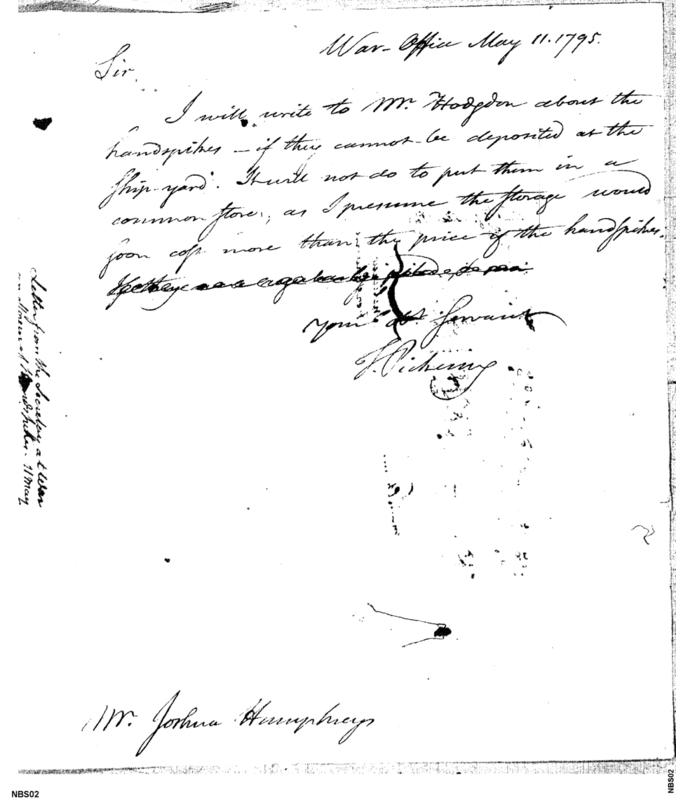 War-Office May 11. 1795.
Sir,
I will write to Mr. Hodgdon about the
handspikes – if they cannot be deposited at the
Ship-yard. It will not do to put them in a
common store; as I presume the storage would
soon cost more than the price of the handspikes.
Your Servant
T. Pickering
Mr. Joshua Humphreys
Letter from the Secretary at War
Handspikes. 11 May
NBS02
NBS02